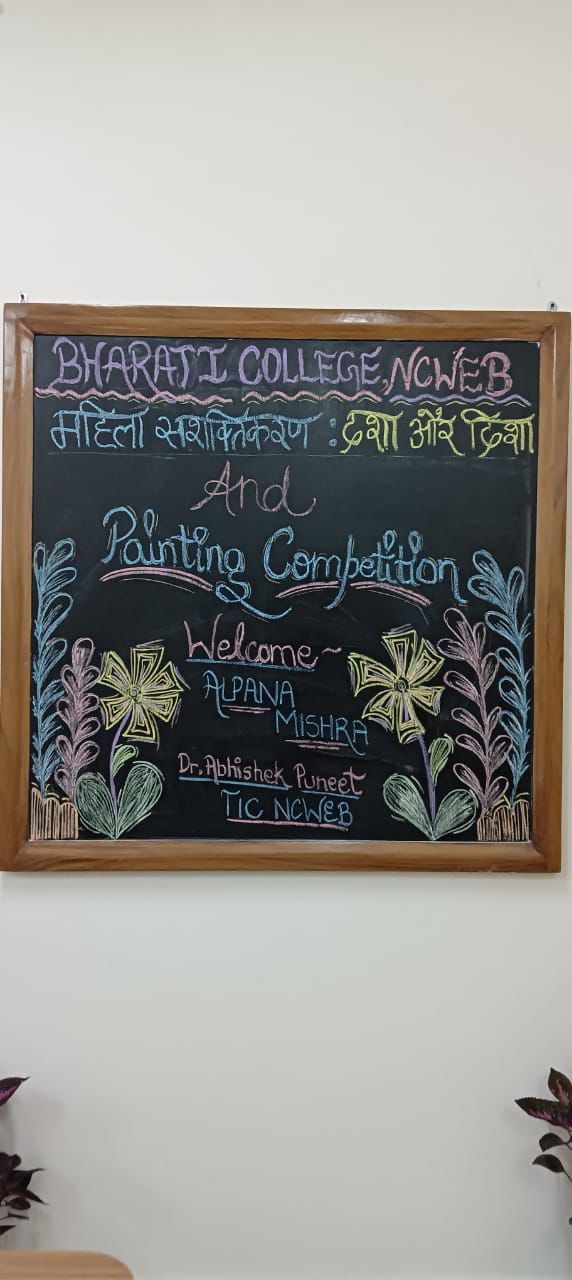 BHARATI COLLEGE, NCWEB
महिला सशक्तिकरण : दशा और दिशा
And
Painting Competition
Welcome~
ALPANA
MISHRA
Dr. Abhishek Puneet
TIC NCWEB